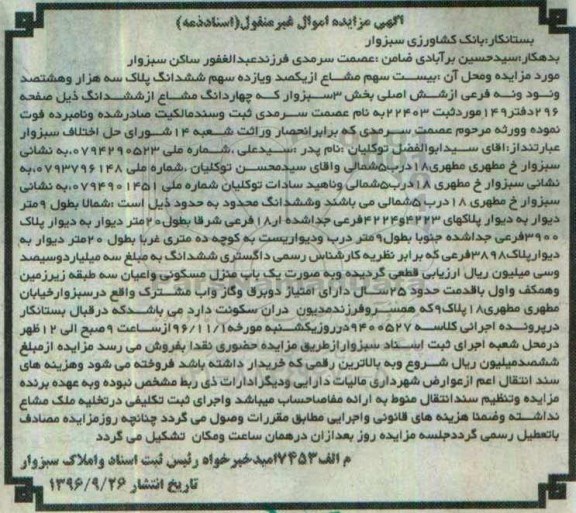 آگهی مزایده اموال غیرمنقول(اسنادذمه)
بستانکار:بانک کشاورزی سبزوار
بدهکار:سیدحسین برآبادی ضامن :عصمت سرمدی فرزندعبدالغفور ساکن سبزوار
مورد مزایده ومحل آن :بیست سهم مشاع ازیکصد ویازده سهم ششدانگ پلاک سه هزار وهشتصد
ونود ونه فرعی ازشش اصلی بخش ۳سبزوار که چهاردانگ مشاع ازششدانگ ذیل صفحه
۲۹۶دفتر۱۴۹موردثبت ۲۲۴۰۳به نام عصمت سرمدی ثبت وسندمالکیت صادرشده ونامبرده فوت
نموده وورثه مرحوم عصمت سرمدی که برابرانحصار وراثت شعبه ۱۴شورای حل اختلاف سبزوار
عبارتنداز:اقای سیدابوالفضل توکلیان :نام پدر :سیدعلی ،شماره ملی ۰۷۹۴۲۹۰۵۲۳،به نشانی
سبزوار خ مطهری مطهری۱۸درب۵شمالی واقای سیدمحسن توکلیان ،شماره ملی ۰۷۹۳۷۹۶۱۴۸،به
نشانی سبزوار خ مطهری ۱۸درب۵شمالی وناهید سادات توکلیان شماره ملی ۰۷۹۴۹۰۱۴۵۱،به نشانی
سبزوار خ مطهری ۱۸درب ۵شمالی می باشند وششدانگ محدود به حدود ذیل است :شمالا بطول ۹متر
دیوار به دیوار پلاکهای ۴۲۲۳و۴۲۲۴فرعی جداشده از۱۸فرعی شرقا بطول۲۰متر دیوار به دیوار پلاک
۳۹۰۰فرعی جداشده جنوبا بطول۹متر درب ودیواریست به کوچه ده متری غربا بطول ۲۰متر دیوار به
دیوارپلاک۳۸۹۸فرعی که برابر نظریه کارشناس رسمی دادگستری ششدانگ به مبلغ سه میلیاردوسیصد
وسی میلیون ریال ارزیابی قطعی گردیده وبه صورت یک باب منزل مسکونی واعیان سه طبقه زیرزمین
وهمکف واول باقدمت حدود ۲۵سال دارای امتیاز دوبرق وگاز واب مشترک واقع درسبزوارخیابان
مطهری مطهری۱۸پلاک۹که همسروفرزندمدیون دران سکونت دارد می باشدکه درقبال بستانکار
درپرونده اجرائی کلاسه ۹۴۰۰۵۲۷درروزیکشنبه مورخه۹۶/۱۱/۱ازساعت ۹صبح الی ۱۲ظهر
درمحل شعبه اجرای ثبت اسناد سبزوارازطریق مزایده حضوری نقدا بفروش می رسد مزایده ازمبلغ
ششصدمیلیون ریال شروع وبه بالاترین رقمی که خریدار داشته باشد فروخته می شود وهزینه های
سند انتقال اعم ازعوارض شهرداری مالیات دارایی ودیگرادارات ذی ربط مشخص نبوده وبه عهده برنده
مزایده وتنظیم سندانتقال منوط به ارائه مفاصاحساب میباشد واجرای ثبت تکلیفی درتخلیه ملک مشاع
نداشته وضمنا هزینه های قانونی واجرایی مطابق مقررات وصول می گردد چنانچه روزمزایده مصادف
باتعطیل رسمی گرددجلسه مزایده روز بعدازان درهمان ساعت ومکان تشکیل می گردد
م الف۷۴۵۳امیدخبرخواه رئیس ثبت اسناد واملاک سبزوار
تاریخ انتشار ۱۳۹۶/۹/۲۶